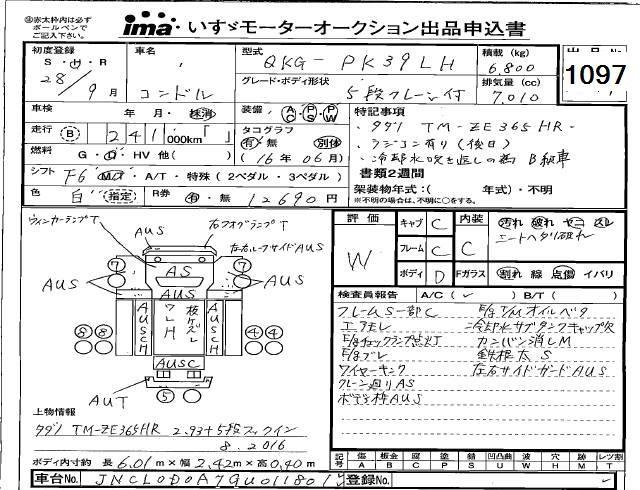 ㊟赤太枠内は必ず
ボールペンで
ご記入下さい。
ima いすゞモーターオークション出品申込書
初度登録
S・H・R
28 / 9 月
車名
コンドル
型式
QKG- PK39LH
グレード・ボディ形状
5段クレーン付
積載 (kg)
6,800
排気量 (cc)
7,010
1097
車検
年・月・抹消
装備
AC PS PW
走行 B 241 000km「 」
タコグラフ
有・無 別体
(16年06月)
燃料
G・D・HV 他( )
シフト F6 MT・A/T・特殊 (2ペダル・3ペダル)
色 白 指定
R券 有・無 12690円
特記事項
・タダノ TM-ZE365HR・
・ラジコン有り(後日)
・冷却水吹き返しの為 B級車
書類2週間
架装物年式:( 年式)・不明
※不明の場合は、不明に○をする。
ウィンカーランプT
右フォグランプT
AUS
左右ルーフサイドAUS
AS
7
7
AUS
AUS
AUSCH
フレH
板ケズレ
AUSCH
8 8
4 4
AUSC
AUT
5
評価
W
キャブ C
フレーム C
ボディ D
内装
C
Fガラス
汚れ 破れ ヤニ スレ
シートヘタリ破れ
割れ 線 点傷 イバリ
検査員報告
A/C (✓) B/T ( )
フレームS一部C
エアモレ
E/gチェックランプ点灯
E/gブレ
ワイヤーキンク
クレーン廻りAS
ボデー枠AUS
E/g T/Mオイルベタ
冷却水サブタンクキャップ欠
カンバン消しM
鉄根太S
左右サイドガードAUS
上物情報
タダノ TM-ZE365HR 2.93t 5段フックイン
8. 2016
ボディ内寸約 長6.01m×幅2.42m×高0.40m
記号
傷 板金 腐 塗 錆 凹凸曲 波 穴 跡 レツ割
A B C P S U W H M T
車台No. JNCL0D0A7GU011801
登録No.